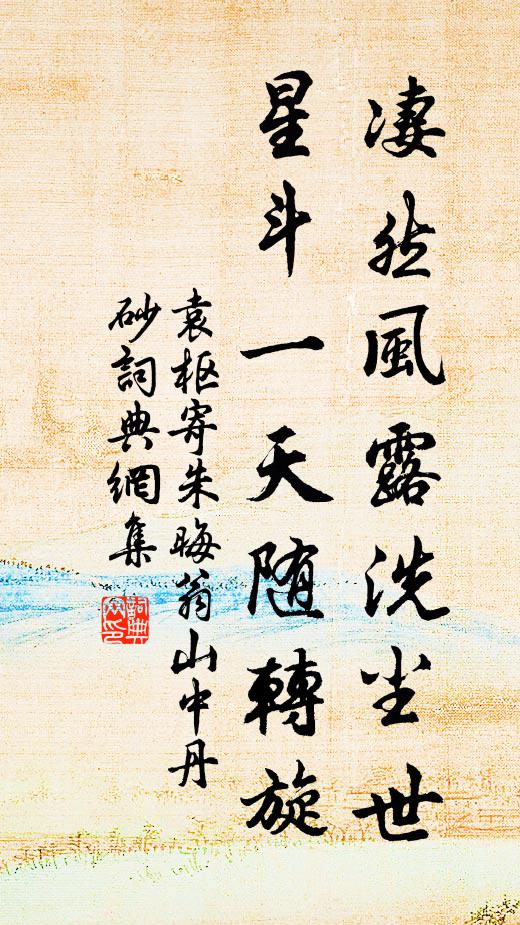 凄然風露洗尘世
星斗一天随轉旋
袁枢寄朱晦翁山中丹
砂詞典網集
詞典